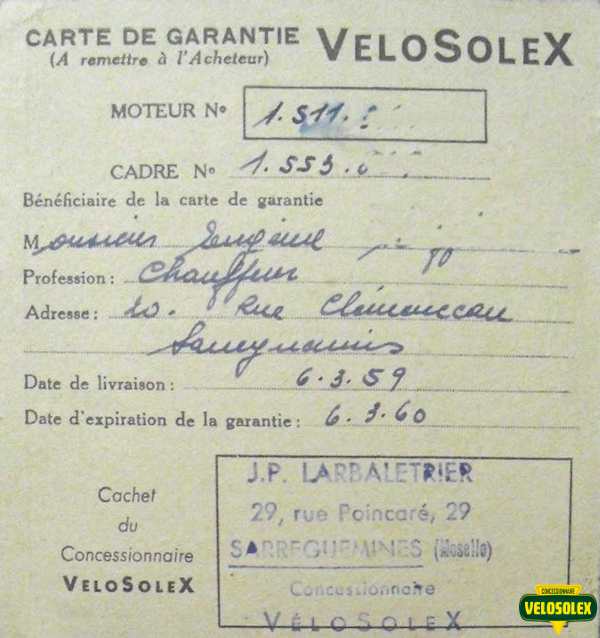 CARTE DE GARANTIE VELOSOLEX
(A remettre à l'Acheteur)
MOTEUR No 1.511.
CADRE No 1.553.
Bénéficiaire de la carte de garantie
Monsieur Eugène
Profession : Chauffeur
Adresse : 20. Rue Clémenceau
Sarreguemines
Date de livraison : 6.3.59
Date d'expiration de la garantie : 6.3.60
J.P. LARBALETRIER
29, rue Poincaré, 29
SARREGUEMINES (Moselle)
Concessionnaire
VÉLOSOLEX
Cachet
du
Concessionnaire
VELOSOLEX
CONCESSIONNAIRE
VELOSOLEX